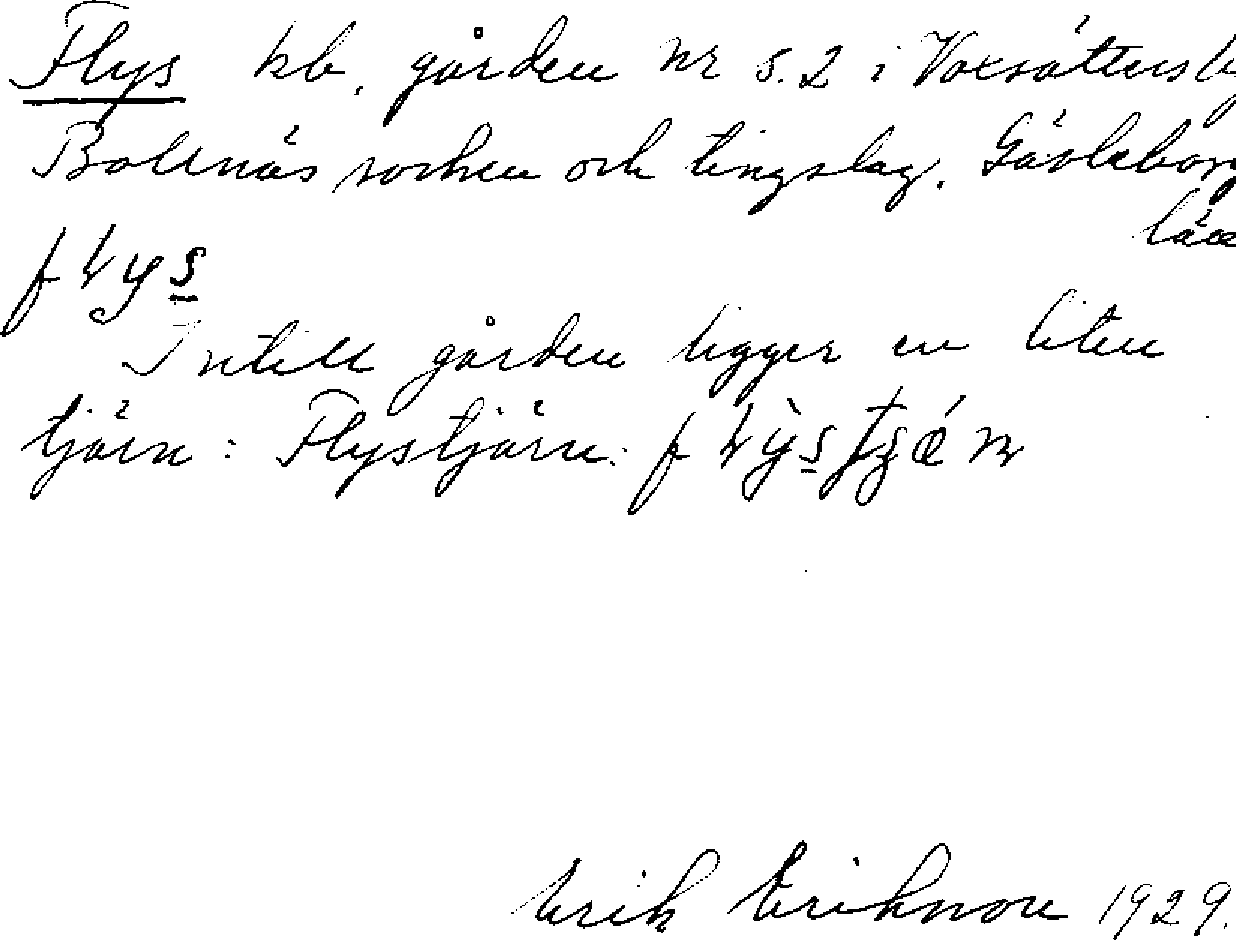 Flys kb, gården nr 5.2 i Voxsätters by
Bollnäs socken och tingslag. Gävleborg
län
Intill gården ligger en liten
tjärn: Flystjärn:
Erik Eriksson 1929.